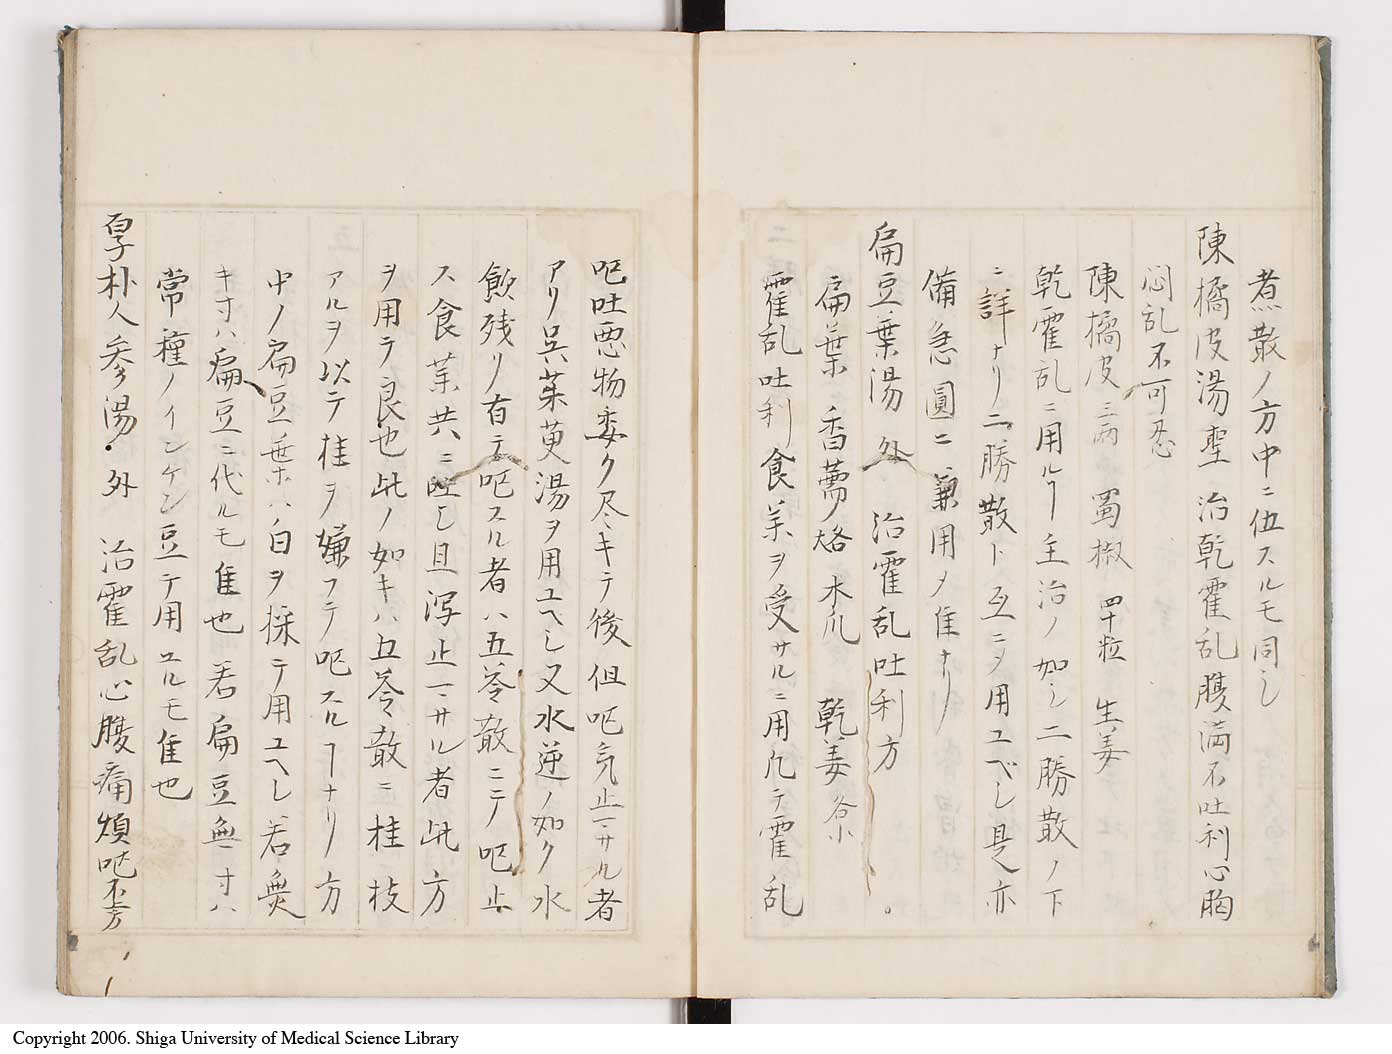 煮散ノ方中ニ伍スルモ同シ
陳橘皮湯 聖 治乾霍乱腹満不吐利心胸
悶乱不可忍
陳橘皮 三両 蜀椒 四十粒 生姜
乾霍乱ニ用ルヿ主治ノ如シ二勝散ノ下
ニ詳ナリ二勝散ト互ニヲ用ユベシ是亦
備急圓ニ兼用メ隹ナリ
扁豆葉湯 外 治霍乱吐利方
扁葉 香薷 各 木瓜 乾姜 各小
霍乱吐利食薬ヲ受サルニ用凡テ霍乱
呕吐悪物委ク尽キテ後但呕気止マサル者
アリ呉茱萸湯ヲ用ユヘシ又水逆ノ如ク水
飲残リ有テ呕スル者ハ五苓散ニテ呕止
ス食薬共ニ吐シ且泻止マサル者此方
ヲ用テ良也此ノ如キハ五苓散ニ桂枝
アルヲ以テ桂ヲ嫌フテ呕スルヿナリ方
中ノ扁豆葉ハ白ヲ採テ用ユヘシ若無
キ寸ハ扁豆ニ代ルモ隹也若扁豆無寸ハ
常種ノインケン豆テ用ユルモ隹也
厚朴人参湯 外 治霍乱心腹痛煩呕不止方